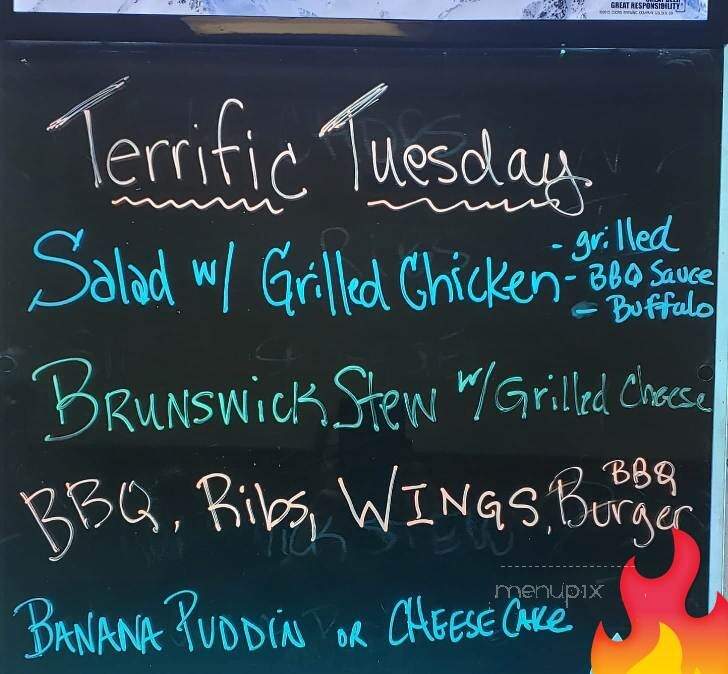 GREAT RESPONSIBILITY
Terrific Tuesday
Salad w/ Grilled Chicken - grilled
- BBQ Sauce
- Buffalo
Brunswick Stew w/ Grilled Cheese
BBQ, Ribs, WINGS, BBQ Burger
BANANA PUDDIN OR CHEESE CAKE
menupix